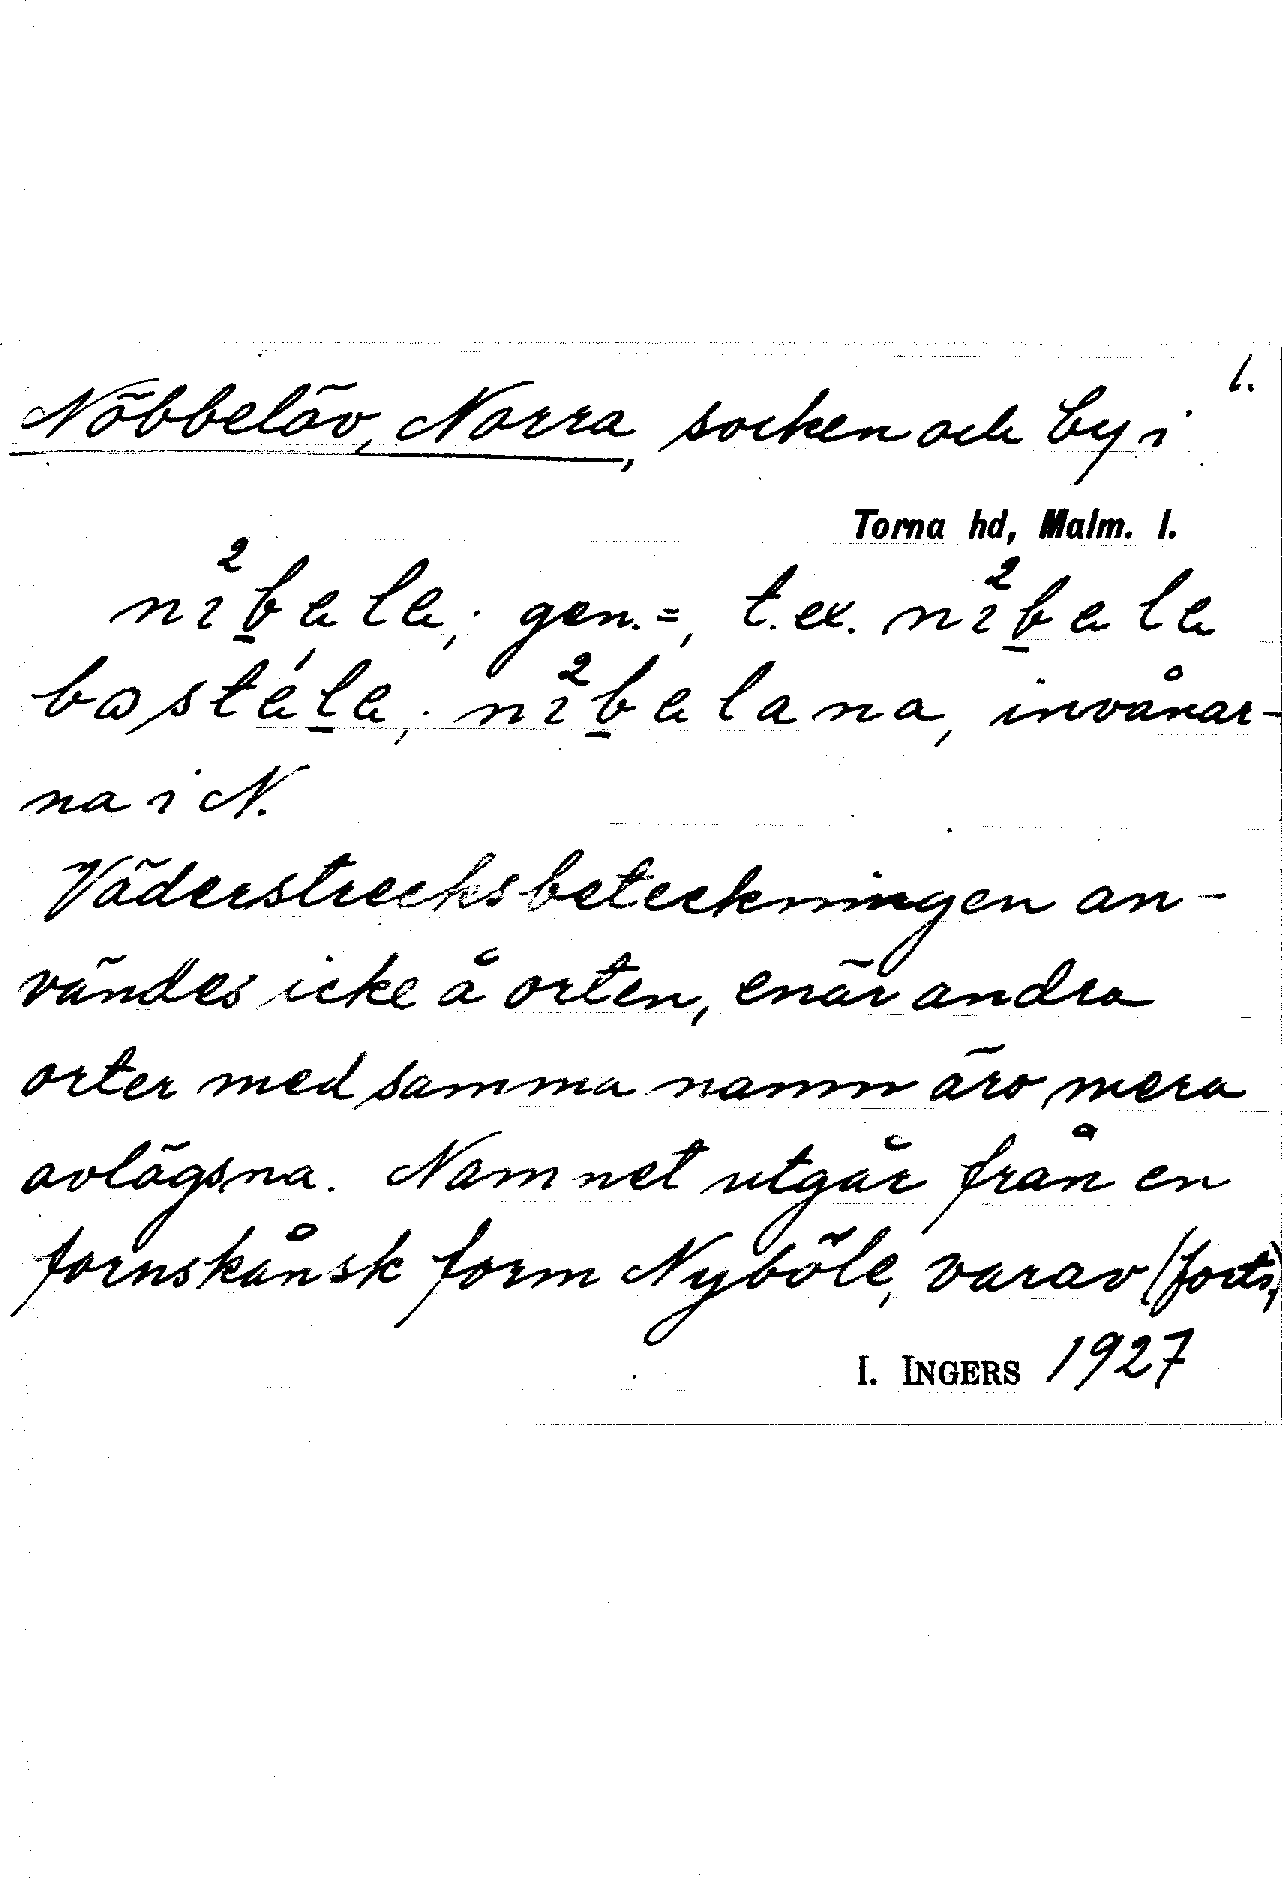 1.
Nöbbelöv, Norra, socken och by i
Torna hd, Malm. l.
nı²b̲ələ; gen. =, t.ex. nı²b̲ələ
bɷstél̲ə; nı²b̲əlana, invånar-
na i N.
Väderstrecksbeteckningen an-
vändes icke å orten, enär andra
orter med samma namn äro mera
avlägsna. Namnet utgår från en
fornskånsk form Nyböle, varav (forts.)
I. INGERS 1927